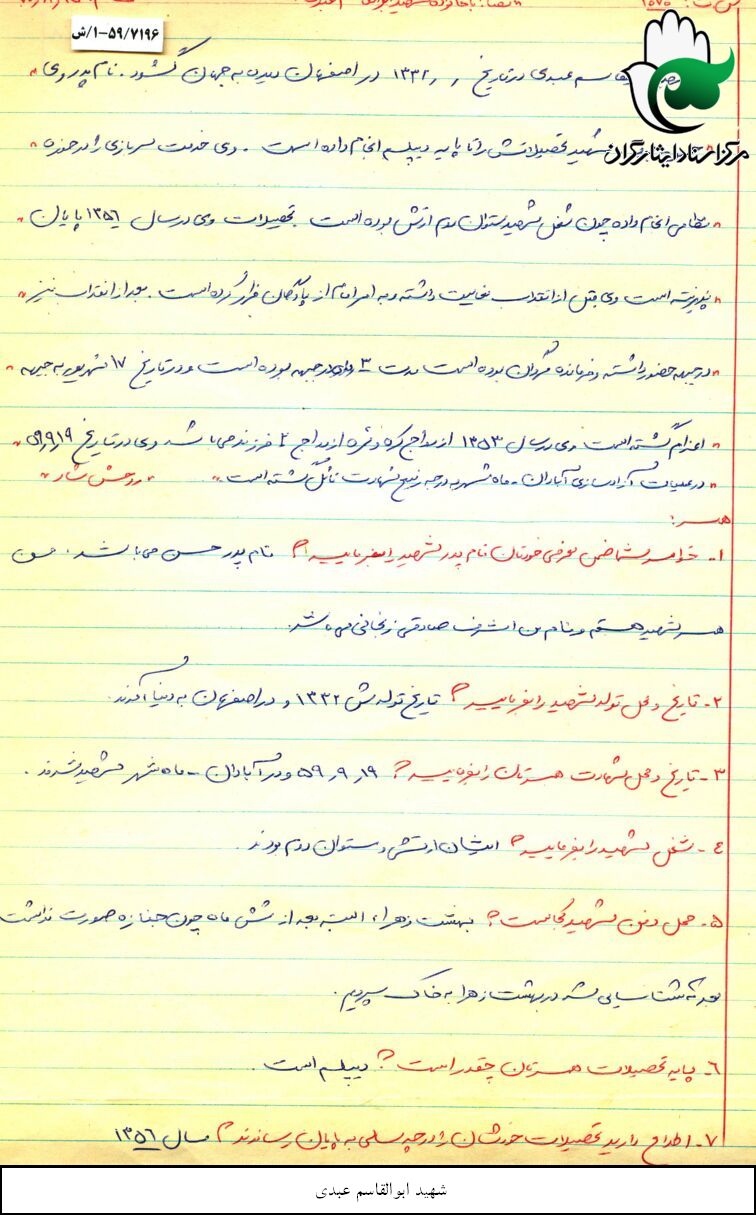 ۵۹/۷۱۹۶-۱/ش
مرکز اسناد ایثارگران
عبدی در تاریخ ۱۳۳۲ در اصفهان دیده به جهان گشود. نام پدر وی
شهید تحصیلاتش را تا پایه دیپلم انجام داده است. وی خدمت سربازی را در حوزه
نظامی انجام داده چون شغل شهید ستوان دوم ارتش بوده است تحصیلات وی در سال ۱۳۵٦ پایان
پذیرفته است وی قبل از انقلاب فعالیت داشته و به امر امام از پادگان فرار کرده است. بعد از انقلاب نیز
در جبهه حضور داشته و فرمانده گردان بوده است مدت ۳ در جبهه بوده است و در تاریخ ۱۷ شهریور به جبهه
اعزام گشته است وی در سال ۱۳۵۳ ازدواج کرده و ثمره ازدواج ۲ فرزند می باشد وی در تاریخ ۵۹٫۹٫۱۹
در عملیات آزادسازی آبادان - ماه شهر به درجه رفیع شهادت نائل گشته است. روحش شاد
همسر:
۱- خواهر شما ضمن معرفی خودتان نام پدر شهید را بفرمایید؟ نام پدر حسن می باشد. من
همسر شهید هستم و نام من اشرف صادقی زنجانی می باشد.
۲- تاریخ و محل تولد شهید را بفرمایید؟ تاریخ تولدش ۱۳۳۲ و در اصفهان به دنیا آمدند.
۳- تاریخ و محل شهادت همسرتان را بفرمایید؟ ۵۹٫۹٫۱۹ و در آبادان - ماه شهر شهید شدند.
٤- شغل شهید را بفرمایید؟ ایشان ارتشی و ستوان دوم بودند.
۵- محل دفن شهید کجاست؟ بهشت زهراء البته بعد از شش ماه چون جنازه صورت نداشت
بعد که شناسایی شد در بهشت زهرا به خاک سپردیم.
٦- پایه تحصیلات همسرتان چقدر است؟ دیپلم است.
۷- اطلاع دارید تحصیلات خودشان را در چه سالی به پایان رساندند؟ سال ۱۳۵٦
شهید ابوالقاسم عبدی